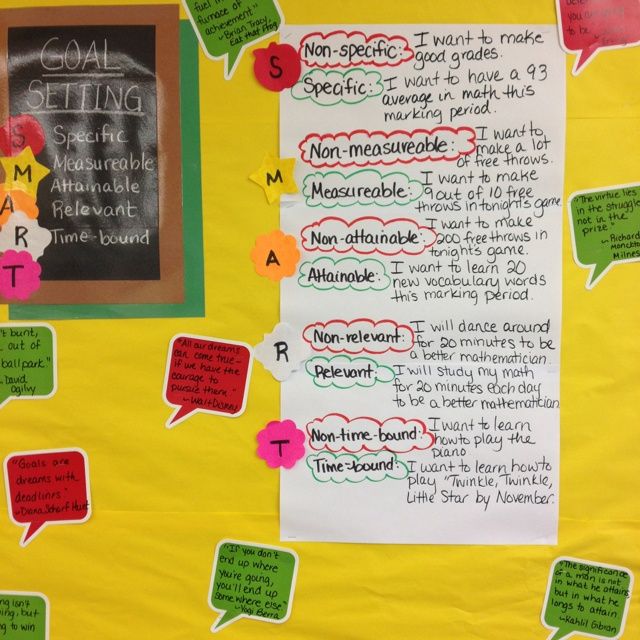 fuel in
furnace of
achievement."
~Brian Tracy,
Eat that Frog
GOAL
SETTING
S Specific
M Measureable
A Attainable
R Relevant
T Time-bound
S
Non-specific: I want to make
good grades.
Specific: I want to have a 93
average in math this
marking period.
M
Non-measureable: I want to
make a lot
of free throws.
Measureable: I want to make
9 out of 10 free
throws in tonight's game.
A
Non-attainable: I want to make
200 free throws in
tonight's game.
Attainable: I want to learn 20
new vocabulary words
this marking period.
R
Non-relevant: I will dance around
for 20 minutes to be
a better mathematician.
Relevant: I will study my math
for 20 minutes each day
to be a better mathematician
T
Non-time-bound: I want to learn
how to play the
piano
Time-bound: I want to learn how to
play "Twinkle, Twinkle,
Little Star by November.
you
to be
"The virtue lies
in the struggle,
not in the
prize"
~Richard
Monckton
Milnes
't bunt,
out of
ball park"
~David
Ogilvy
"All our dreams
can come true~
if we have the
courage to
pursue them"
~Walt Disney
"Goals are
dreams with
deadlines"
~Diana Scharf Hunt
"If you don't
end up where
you're going,
you'll end up
somewhere else"
~Yogi Berra
"The significance
of a man is not
in what he attains
but in what he
longs to attain
~Kahlil Gibran
ng isn't
ing, but
ng to win